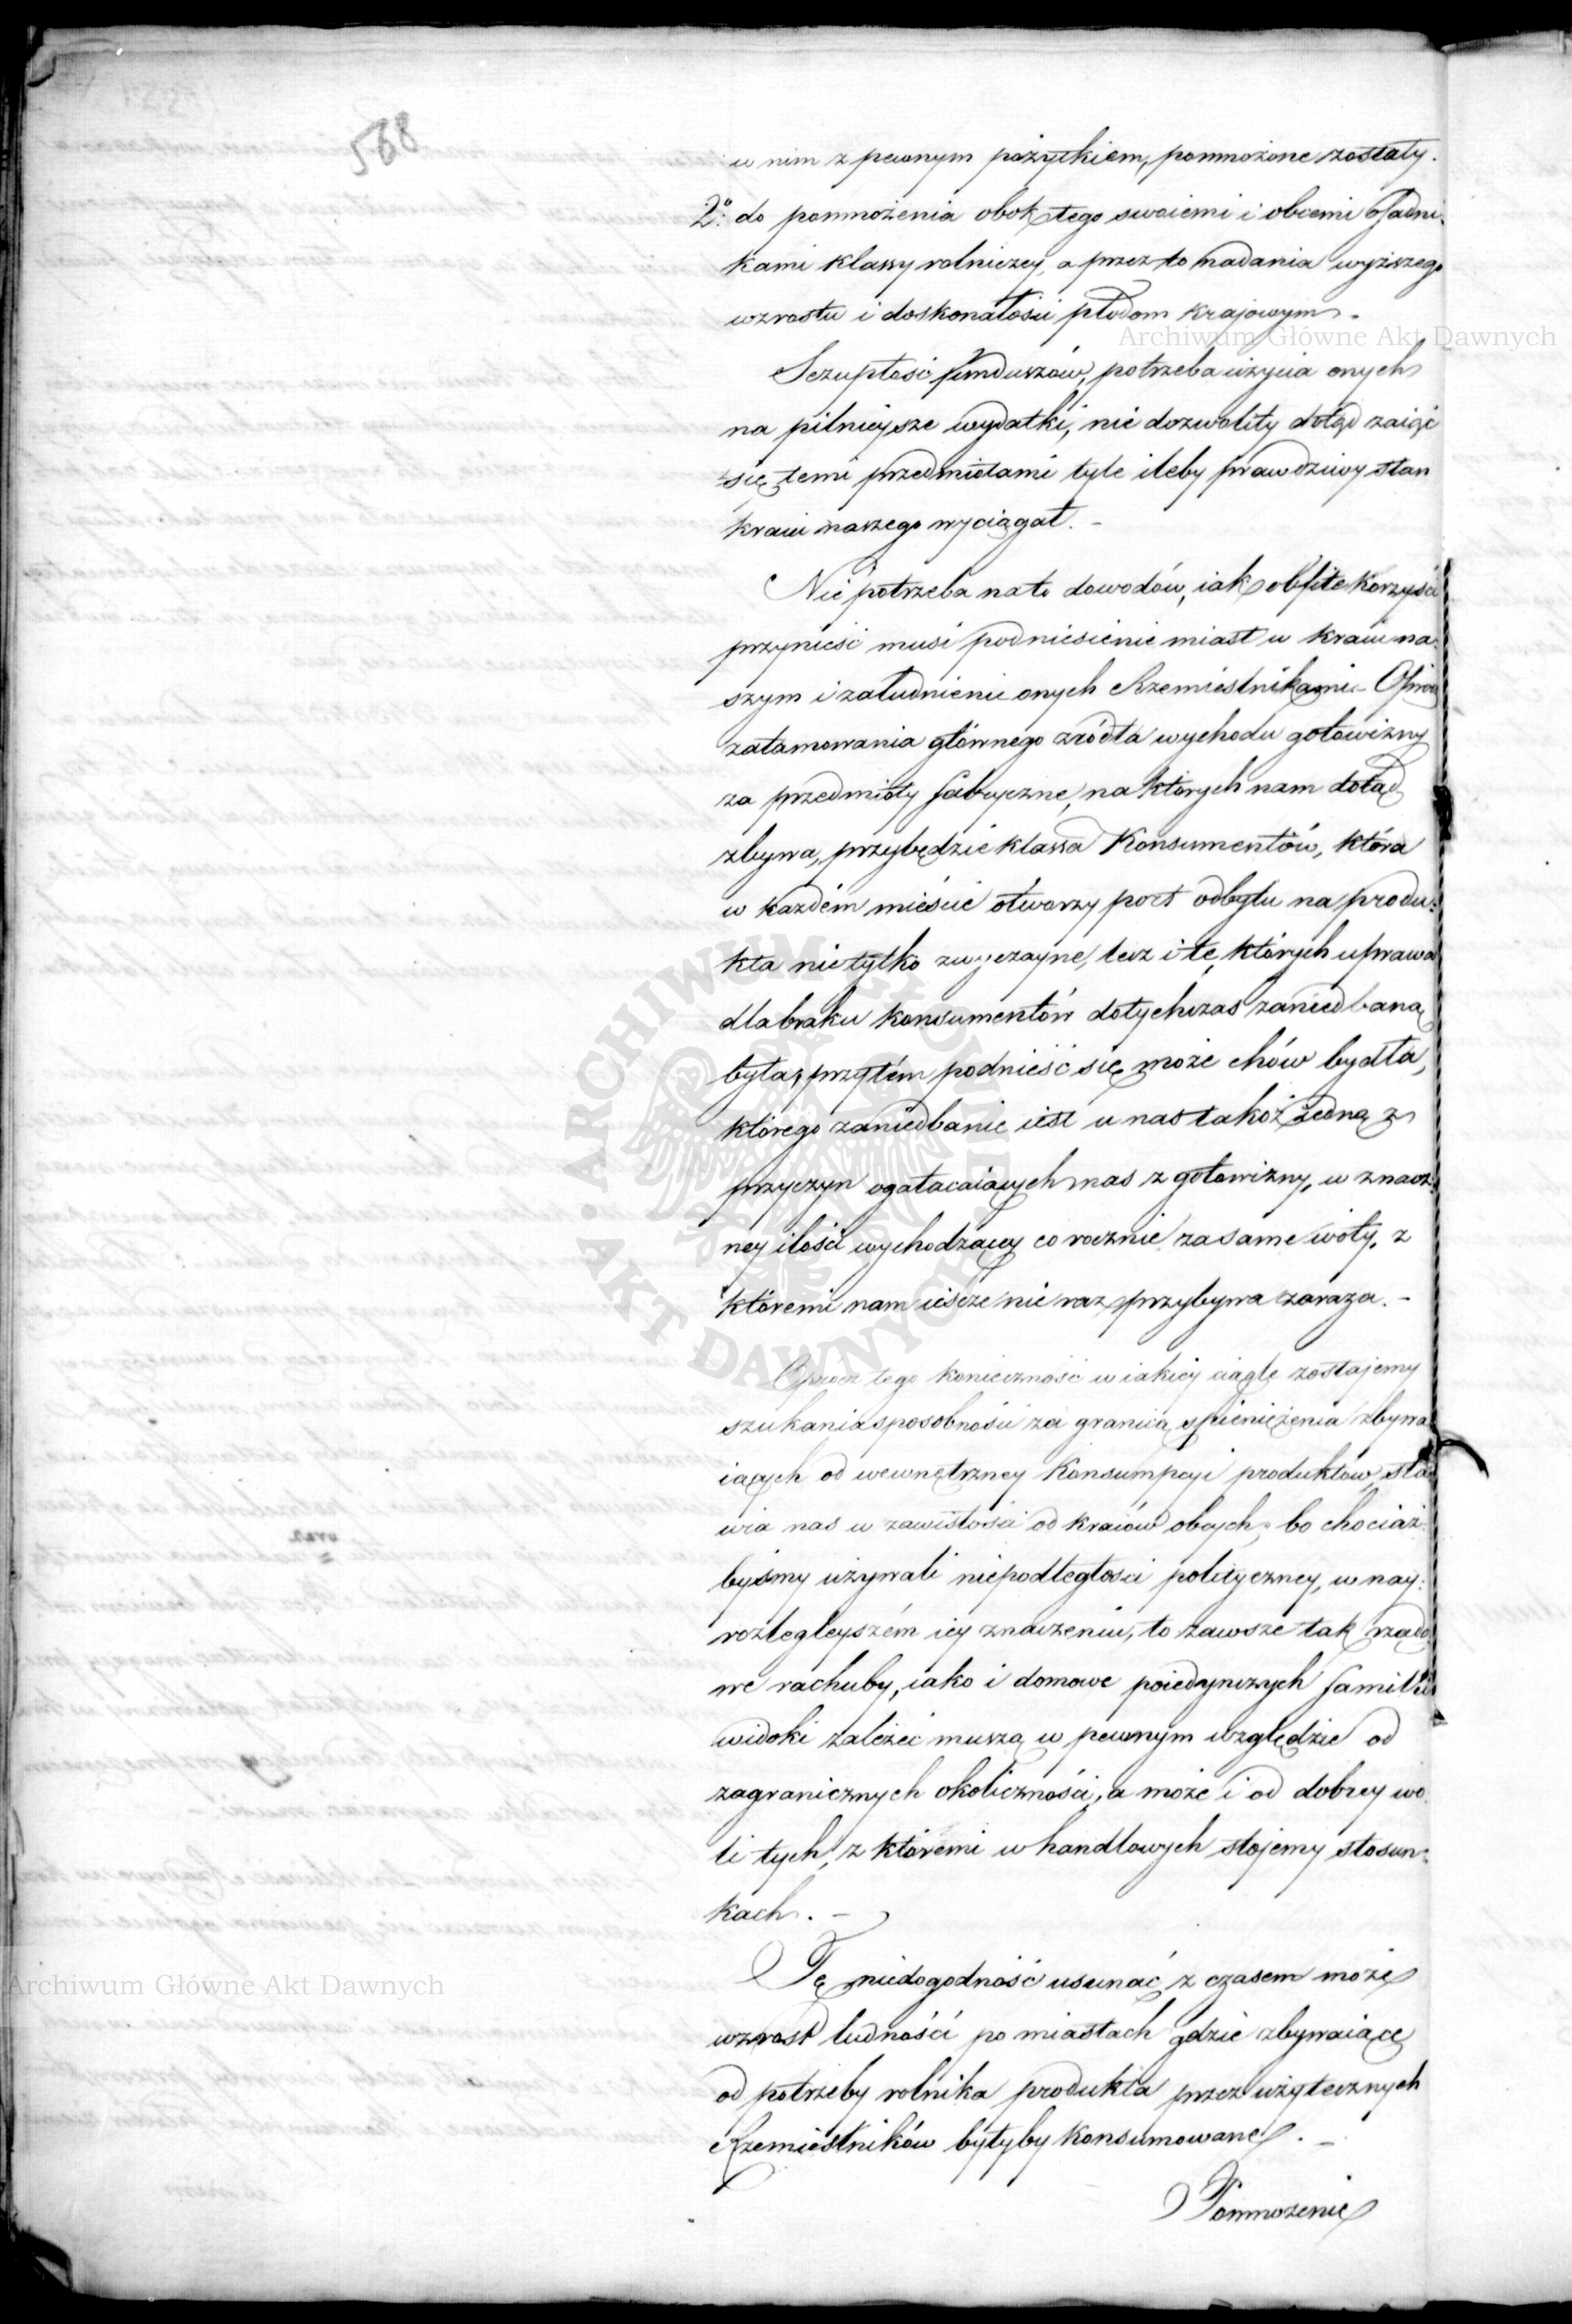 568
w nim z pewnym pożytkiem, pomnożone zostały.
2º do pomnożenia obok tego swoiemi i obcemi Osadni-
kami klassy rolniczey, a przez to nadania wyższego
wzrostu i doskonałości płodom krajowym.
Archiwum Główne Akt Dawnych
Sczupłość funduszów, potrzeba użycia onych
na pilnieysze wydatki, nie dozwoliły dotąd zaiąć
się temi przedmiotami tyle ileby prawdziwy stan
kraiu naszego wyciągał. –
Nie potrzeba na to dowodów, iak obfite korzyści
przynieść musi podniesienie miast w kraiu na-
szym i zaludnienie onych Rzemieślnikami – Oprócz
zatamowania głównego zródła wychodu gotowizny
za przedmioty fabryczne, na których nam dotąd
zbywa, przybędzie klassa Konsumentów, która
w każdém mieście otworzy port odbytu na produ-
kta nie tylko zwyczayne, lecz i te, których uprawa
dla braku konsumentów dotychczas zaniedbaną
była, przytém podnieść się może chów bydła,
którego zaniedbanie iest u nas takoż iedną z
przyczyn ogałacaiących nas z gotowizny, w znacz-
ney ilości wychodzący co rocznie za same woły, z
któremi nam ieszcze nie raz przybywa zaraza. –
Oprócz tego konieczność w iakiey ciągle zostajemy
szukania sposobności za granicą spieniężenia zbywa
iących od wewnętrzney Konsumpcyi produktów, sta
wia nas w zawisłości od kraiów obcych; bo chociaż-
byśmy używali niepodległości polityczney, w nay-
rozległeyszém iey znaczeniu, to zawsze tak rządo
we rachuby, iako i domowe poiedynczych familii
widoki zależeć muszą w pewnym względzie od
zagranicznych okoliczności, a może i od dobrey wo-
li tych, z któremi w handlowych stojemy stosun-
kach. –
Archiwum Główne Akt Dawnych
Tę niedogodność usunąć z czasem może
wzrost ludności po miastach gdzie zbywaiące
od potrzeby rolnika produkta przez użytecznych
Rzemieślników byłyby konsumowane. –
Pomnożenie
ARCHIWUM GŁÓWNE AKT DAWNYCH